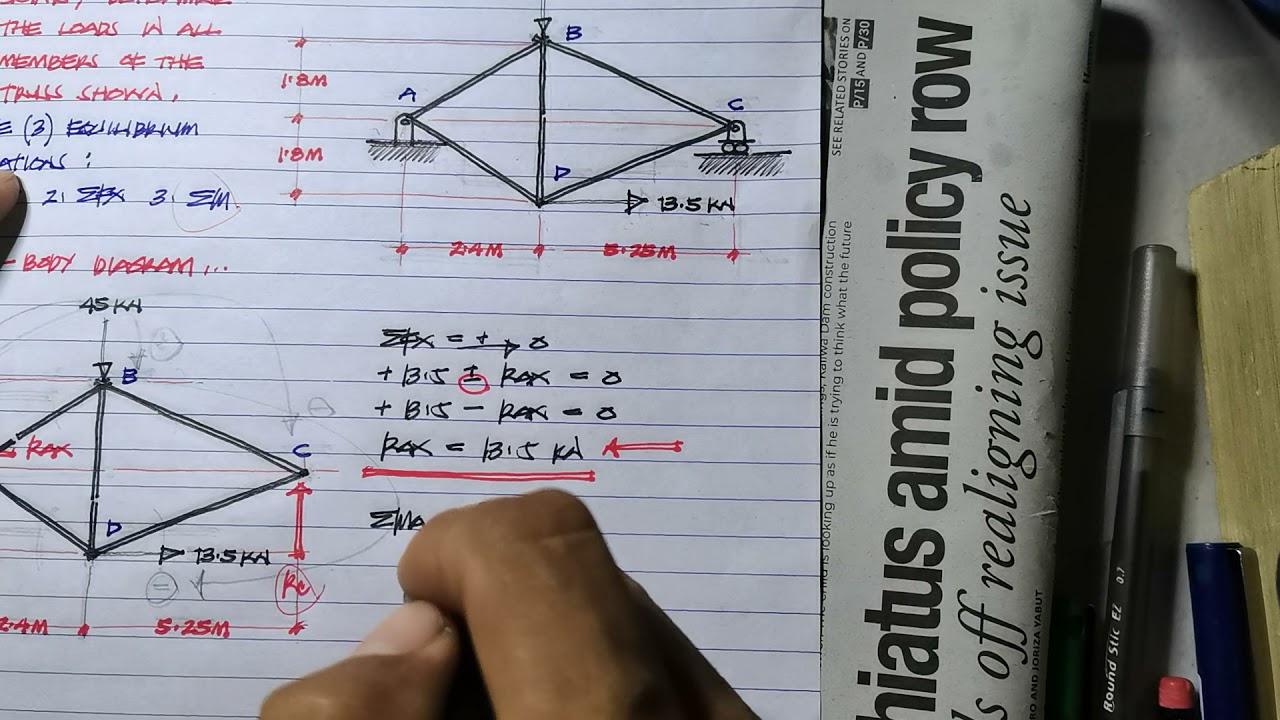 THE LOADS IN ALL
MEMBERS OF THE
TRUSS SHOWN.
(3) EQUILIBRIUM
ATIONS:
2. ΣFX 3. ΣM
- BODY DIAGRAM...
1.8M
1.8M
A
B
C
D
13.5 KN
2.4M
5.25M
45 KN
B
RAX
C
D
13.5 KN
RC
2.4M
5.25M
ΣFX = + → 0
+ 13.5 ± RAX = 0
+ 13.5 - RAX = 0
RAX = 13.5 KN
ΣMA
SEE RELATED STORIES ON
P/15 AND P/30
hiatus amid policy row
s off realigning issue
Kaliwa Dam construction
is looking up as if he is trying to think what the future
RO AND JORIZA YABUT
Round Stic EZ 0.7